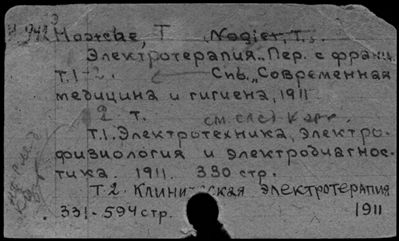 Ноэтсbе, Т Nogier, T.
Электротерапия. Пер. с франц.
Т. 1-2. Спб. „Современная
медицина и гигиена, 1911
2 т. см. след карт.
Т.1. Электротехника, электро-
физиология и электродиагнос-
тика. 1911. 330 стр.
Т 2. Клиническая электротерапия
331-594 стр. 1911